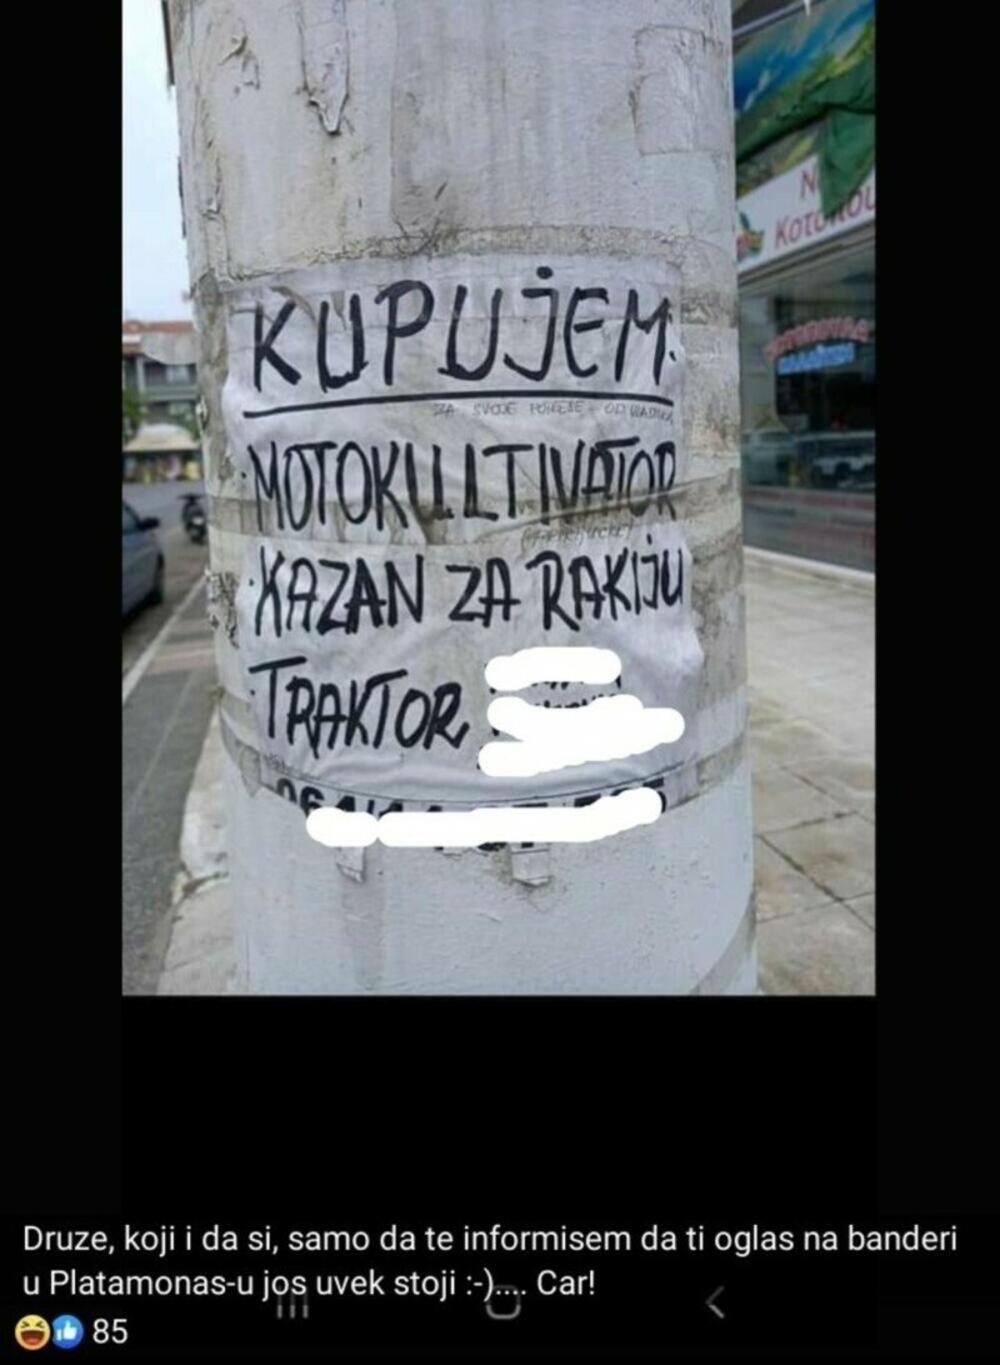 KUPUJEM
ZA SVOJE
MOTOKULTIVATOR
KAZAN ZA RAKIJU
TRAKTOR
Druze, koji i da si, samo da te informisem da ti oglas na banderi
u Platamonas-u jos uvek stoji :-).... Car!
85